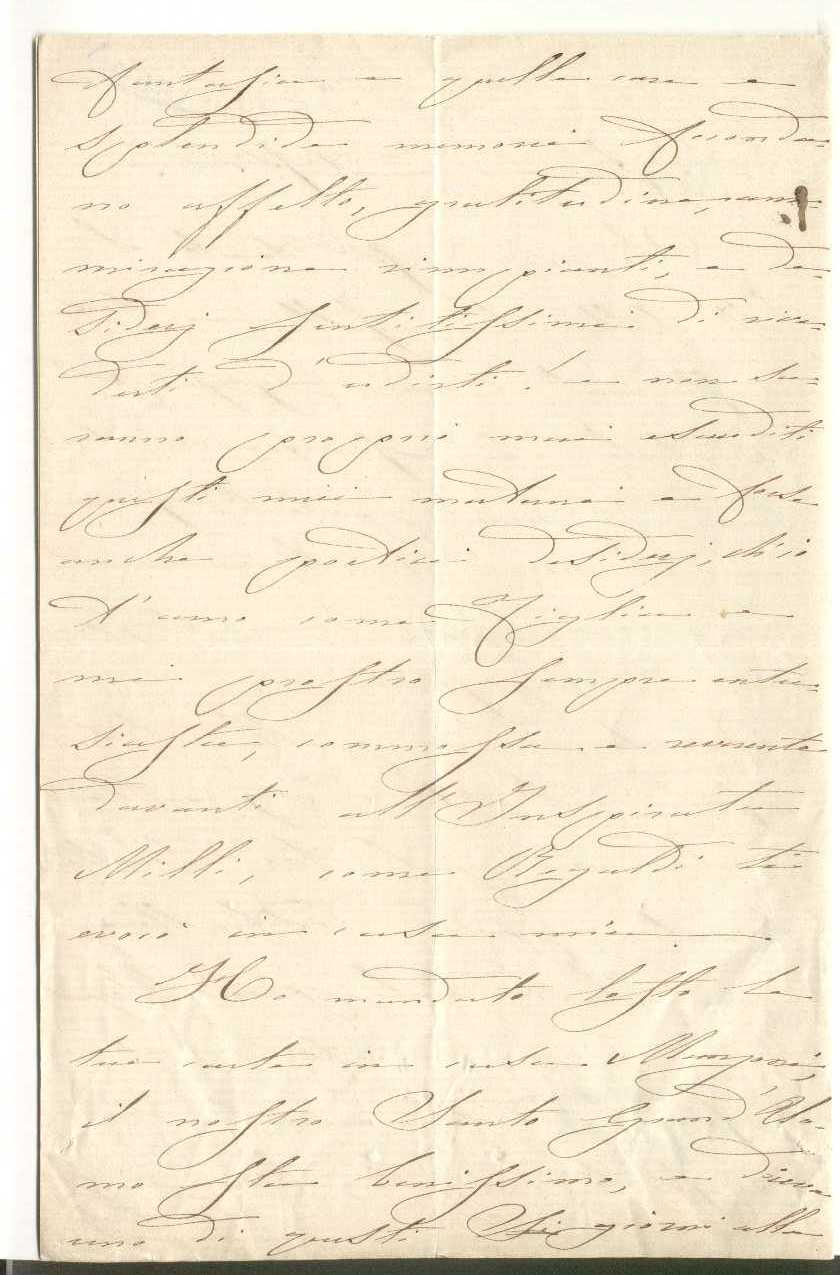 fantasia e quelle care e
splendide memorie feconda-
no affetto, gratitudine, am-
mirazione rimpianti, e de-
siderj sentitissimi di rive-
derti d'udirti! e non sa-
ranno proprio mai esauditi
questi miei materni e forse
anche poetici desiderj, ch'io
t'amo come Figlia e
mi prostro sempre entu-
siasta, commossa e reverente
davanti all'Inspirata
Milli, come Regaldi ti
evocò in casa mia.
Ho mandato tosto la
tua carta in casa Manzoni,
il nostro Santo Grand'Uo-
mo sta benissimo, e diceva
uno di questi giorni alla